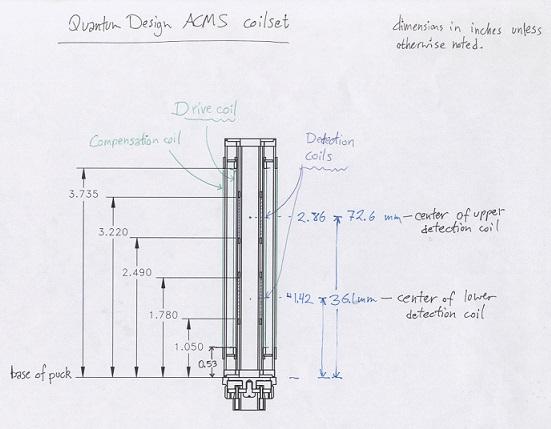 Quantum Design ACMS coilset
dimensions in inches unless
otherwise noted.
Drive coil
Compensation coil
Detection
coils
3.735
3.220
2.86 72.6 mm — center of upper
detection coil
2.490
1.42 36.1mm — center of lower
detection coil
1.780
1.050
0.53
base of puck